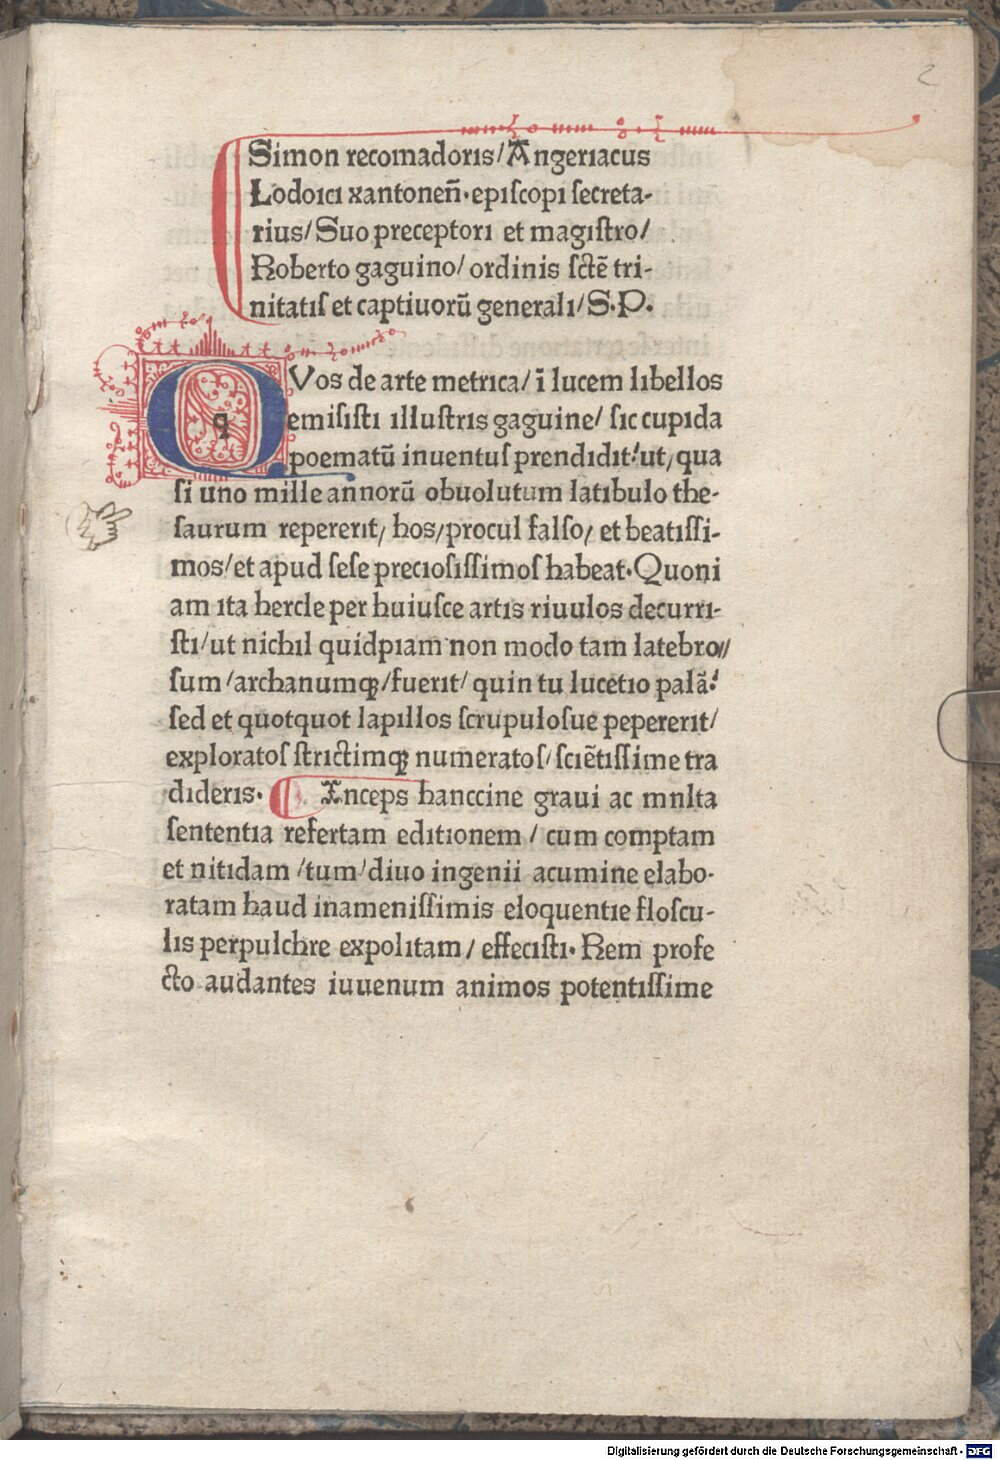 2
Simon recomadoris/Angeriacus
Lodoici xantoneñ·episcopi secreta-
rius/Suo preceptori et magistro/
Roberto gaguino/ordinis sctẽ tri-
nitatis et captiuorũ generali/S·P·
q
Vos de arte metrica/ĩ lucem libellos
emisisti illustris gaguine/ sic cupida
poematũ inuentus prendidit:ut,qua
si uno mille annorũ obuolutum latibulo the-
saurum repererit, hos/procul falso, et beatissi-
mos/et apud sese preciosissimos habeat·Quoni
am ita hercle per huiusce artis riuulos decurri-
sti/ut nichil quidpiam non modo tam latebro//
sum/archanumqꝫ/fuerit/quin tu lucetio palã:
sed et quotquot lapillos scrupulosue pepererit/
exploratos strictimqꝫ numeratos/sciẽtissime tra
dideris· Inceps hanccine graui ac mnlta
sententia refertam editionem / cum comptam
et nitidam /tum/diuo ingenii acumine elabo-
ratam haud inamenissimis eloquentie floscu-
lis perpulchre expolitam/ effecisti· Rem profe
cto audantes iuuenum animos potentissime
Digitalisierung gefördert durch die Deutsche Forschungsgemeinschaft - DFG